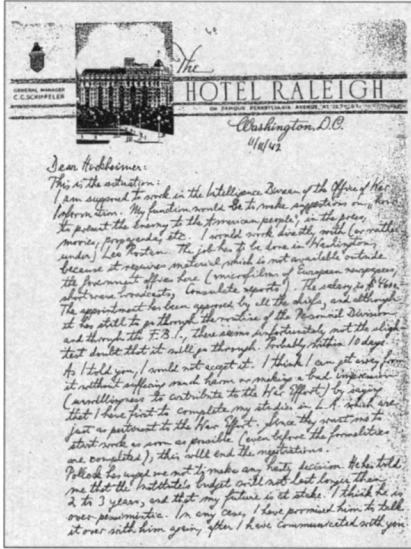 The
HOTEL RALEIGH
GENERAL MANAGER
C. C. SCHIFFELER
ON FAMOUS PENNSYLVANIA AVENUE AT 12TH ST.
Washington, D.C.
11/11/42
Dear Horkheimer:
This is the situation:
I am supposed to work in the Intelligence Bureau of the Office of War
Information. My function would be to make suggestions on "how
to present the enemy to the American people", in the press,
movies, propaganda, etc. I would work directly with (or rather
under) Leo Rosten. The job has to be done in Washington,
because it requires material which is not available outside
the Government offices here (microfilms of European newspapers,
short wave broadcasts, Consulate reports). The salary is $
The appointment has been approved by all the chiefs, and although
it has still to go through the routine of the Personnel Division
and through the F.B.I., there seems unfortunately not the sligh-
test doubt that it will go through. Probably within 10 days.
As I told you, I would not accept it. I think I can get away from
it without suffering much harm or making a bad impression
(unwillingness to contribute to the War Effort) by saying
that I have first to complete my studies in L.A. which are
just as pertinent to the War Effort. Since they want me to
start work as soon as possible (even before the formalities
are completed), this will end the negotiations.
Pollock has urged me not to make any hasty decision. He has told
me that the Institute's budget will not last longer than
2 to 3 years, and that my future is at stake. I think he is
over-pessimistic. In any case, I have promised him to talk
it over with him again, after I have communicated with you